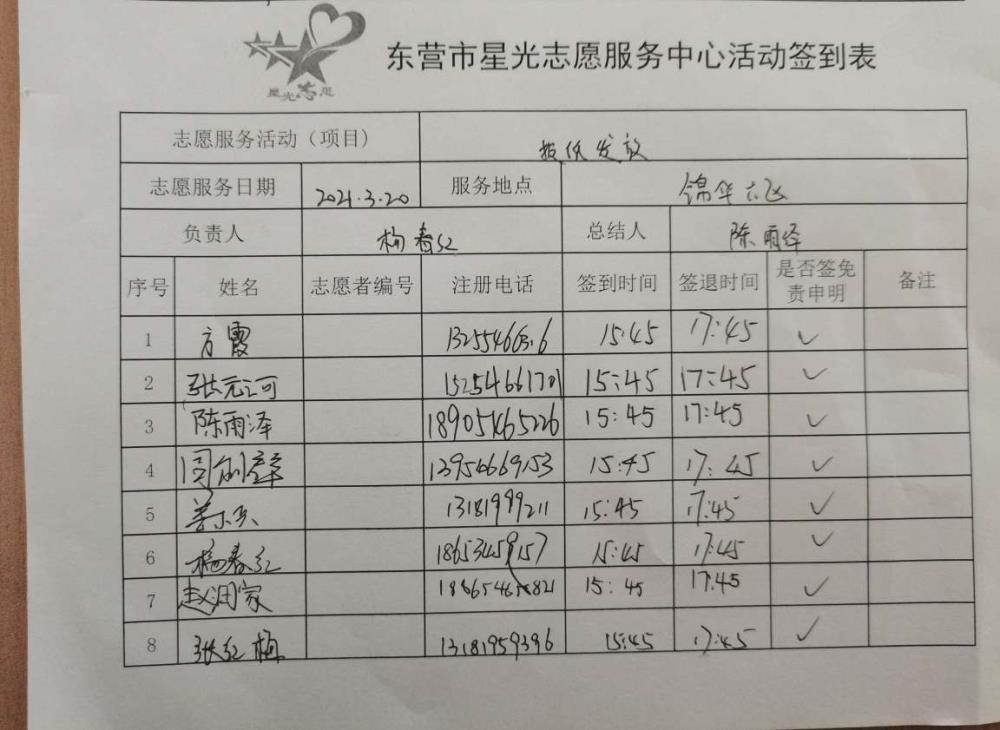 星光志愿
东营市星光志愿服务中心活动签到表
志愿服务活动（项目） 报纸发放
志愿服务日期 2021.3.20 服务地点 锦华六区
负责人 杨春红 总结人 陈雨泽
序号 姓名 志愿者编号 注册电话 签到时间 签退时间 是否签免责申明 备注
1 方霞 15:45 17:45 ✓
2 张元河 15254661701 15:45 17:45 ✓
3 陈雨泽 18905465226 15:45 17:45 ✓
4 13954669153 15:45 17:45 ✓
5 13181999211 15:45 17:45 ✓
6 杨春红 18653459157 15:45 17:45 ✓
7 赵润家 15:45 17:45 ✓
8 张红梅 13181959396 15:45 17:45 ✓